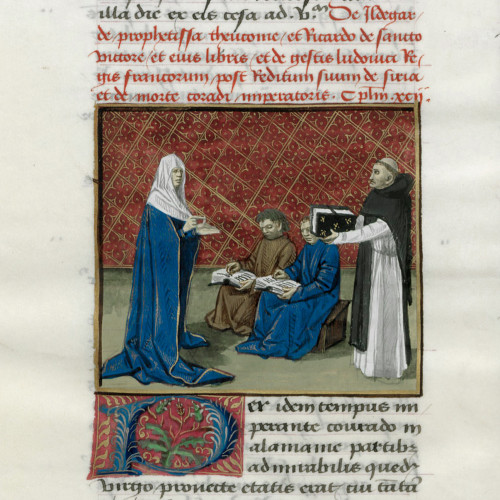 illa die ex eis cesa ad. V.
De Ildegar
de prophetissa theutome, et Ricardo de sancto
victore et eius libris, et de gestis ludovici Re
gis francorum, post Reditum suum de siria
et de morte coradi imperatoris. C plm. xcij.
Per idem tempus im
perante conrado in
alamanie partib
admirabilis quedꝫ
virgo provecte etatis erat, cui